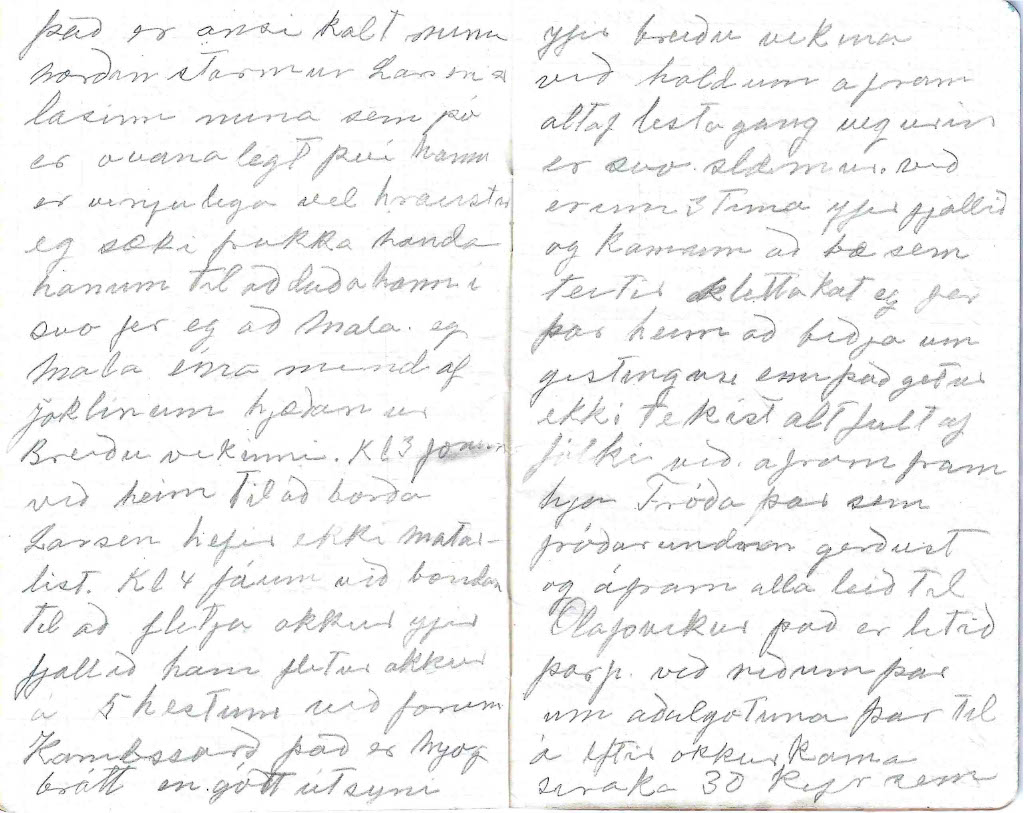 það er ansi kalt núna
norðan stormur Larsen er
lasinn núna sem þó
er ovanalegt því hann
er venjulega vel hraustur
eg sæki frakka handa
hanum til að duða hann i
svo fer eg að mala. eg
mala eina mynd af
jöklinum hjeðan ur
Breiðu vikinni. Kl 3 förum
við heim til að borða
Larsen hefir ekki matar-
list. Kl 4 fáum við bondan
til að flitja okkur yfir
fjallið han flitur okkur
á 5 hestum við forum
Kambsarð það er mjog
brátt en gótt útsyni
yfir breiðu vikina
við holdum afram
altaf lestagang vegurin
er svo slæmur. við
erum 3 tima yfir fjallið
og komum að bæ sem
teitir klettakot eg fer
þar heim að biðja um
gistingu en það getur
ekki tekist alt fult af
fólki við afram fram
hja Fróða þar sem
fróðarundren gerðust
og áfram alla leið til
Olafsvikur það er litið
þorp. við riðum þar
um aðalgotuna þar til
á eftir okkur koma
svaka 30 kyr sem